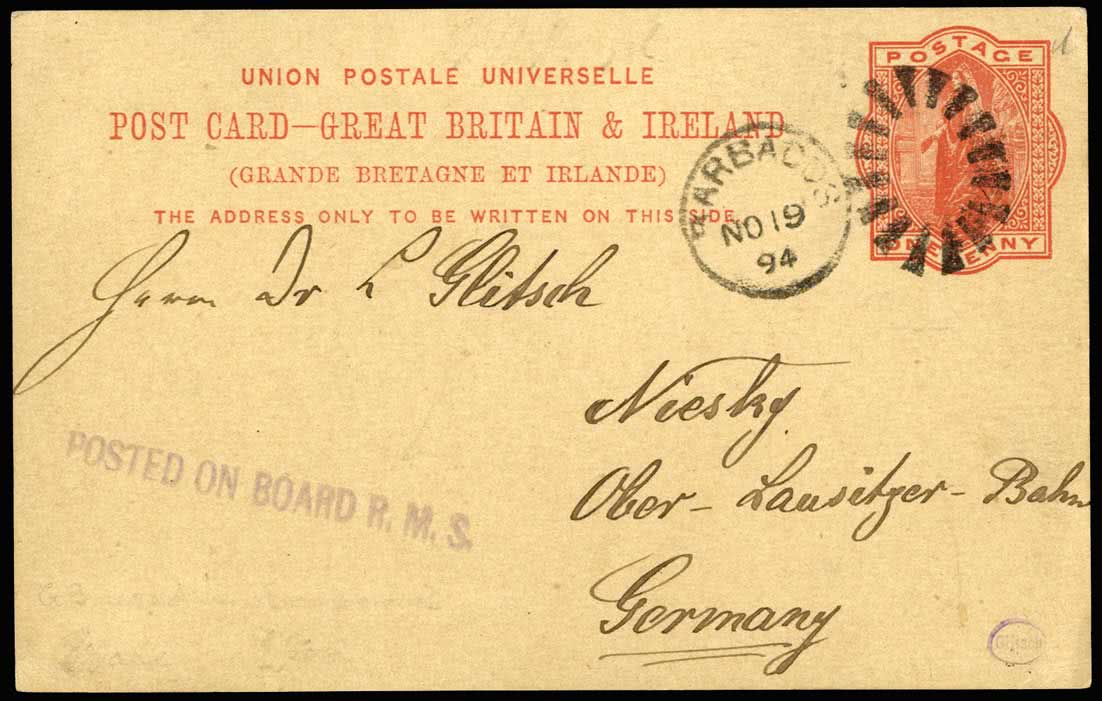 POSTAGE
UNION POSTALE UNIVERSELLE
POST CARD—GREAT BRITAIN & IRELAND
(GRANDE BRETAGNE ET IRLANDE)
THE ADDRESS ONLY TO BE WRITTEN ON THIS SIDE.
ONE PENNY
BARBADOS
NO 19
94
Herrn Dr L Glitsch
Niesky
Ober-Lausitzer-Bahn
Germany
POSTED ON BOARD R. M. S.
Glitsch